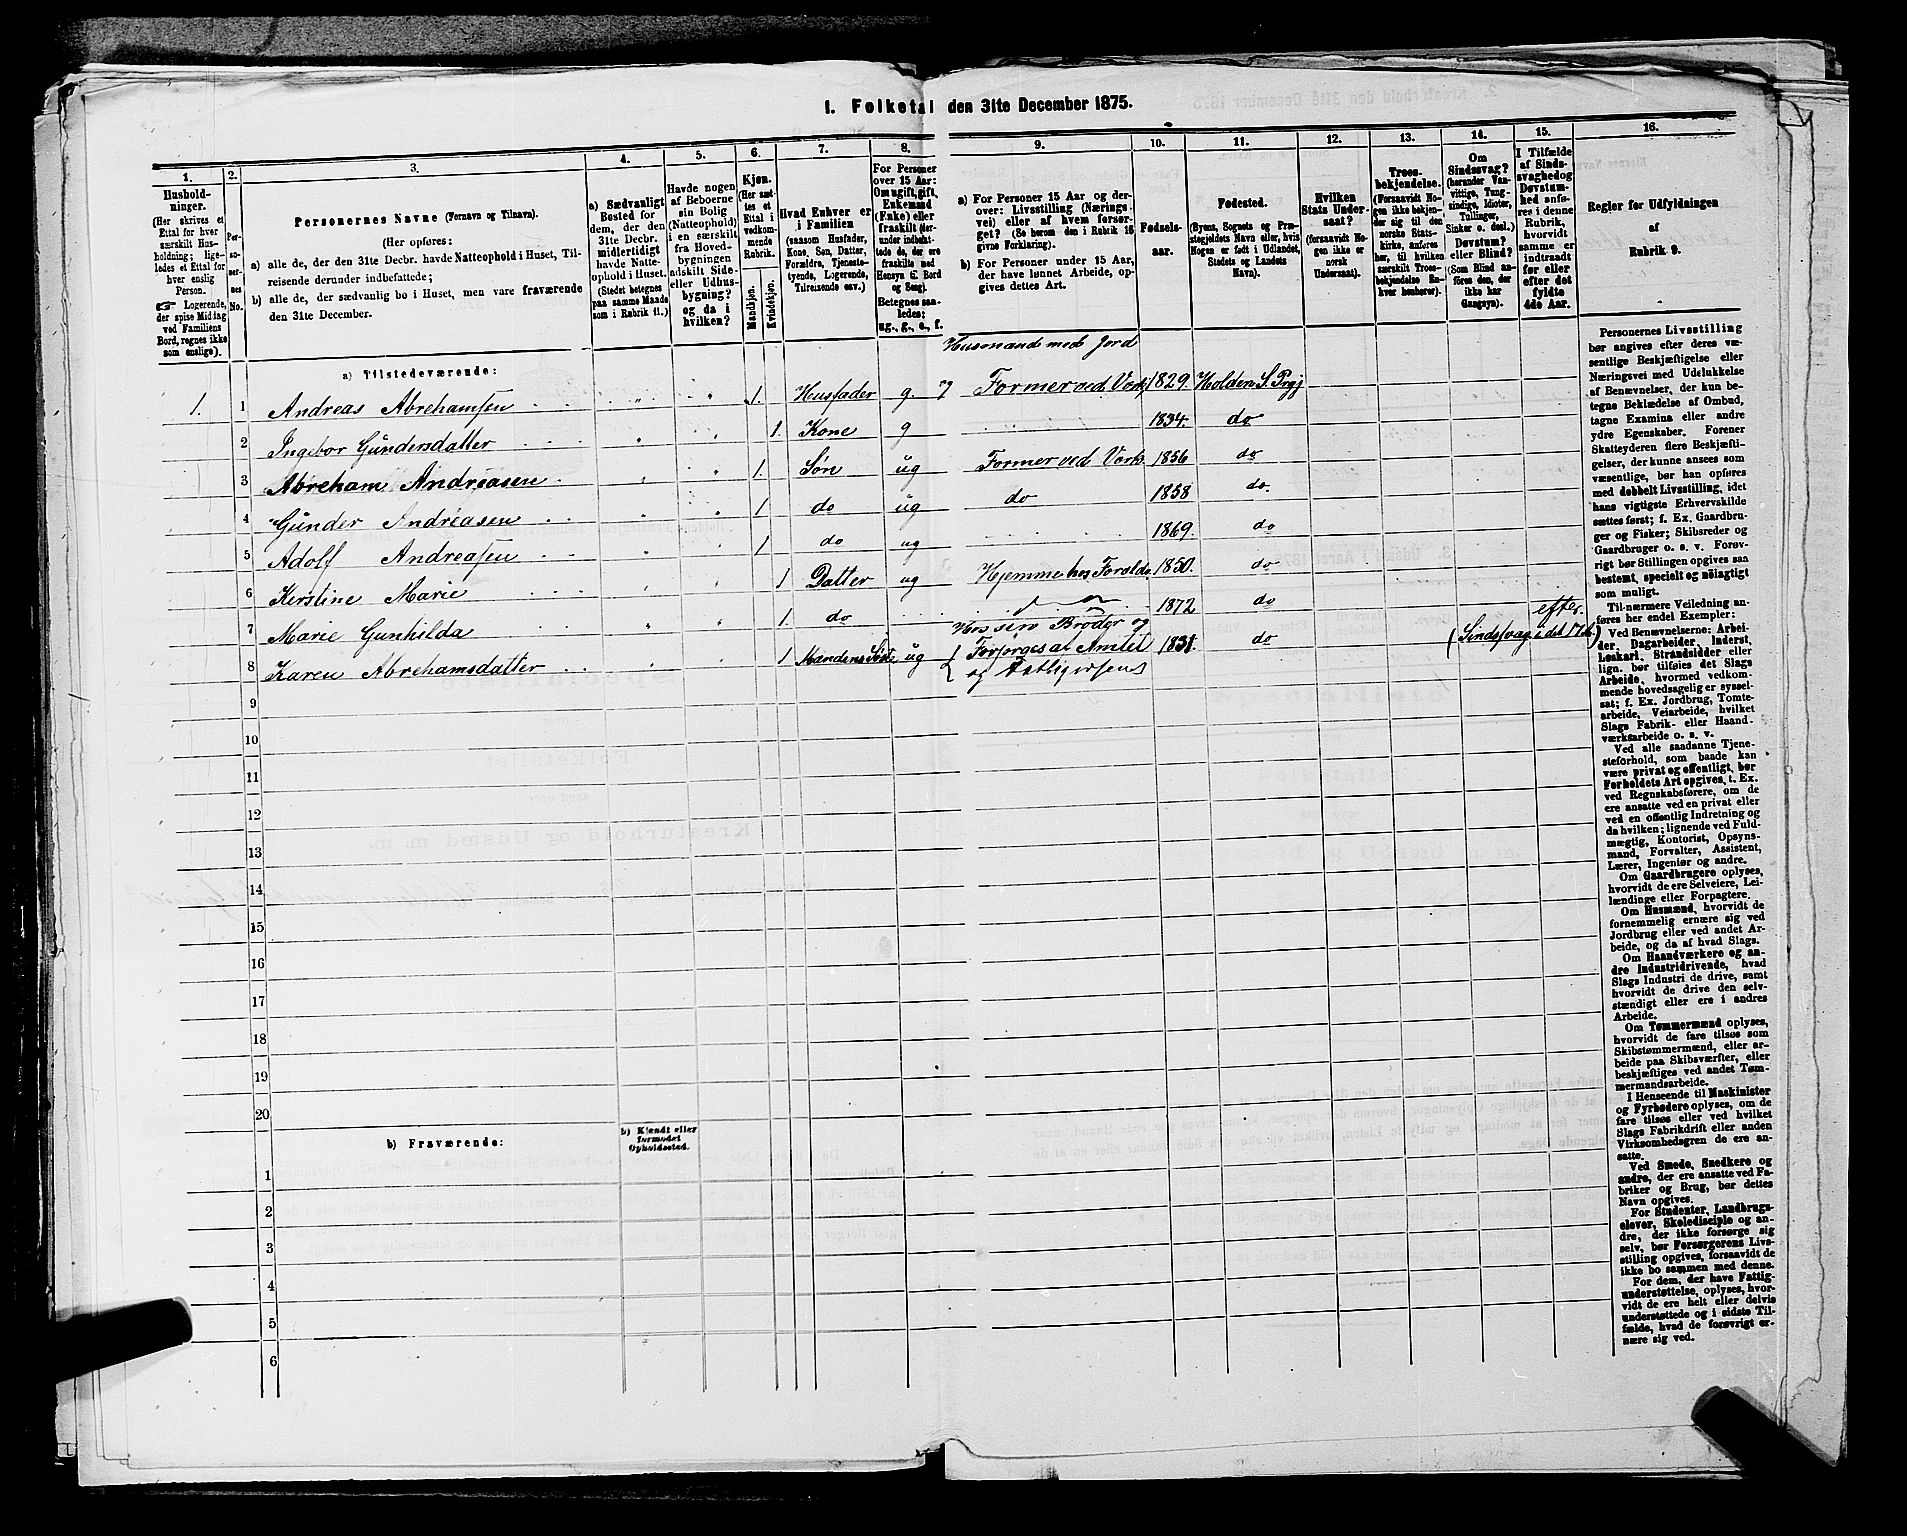 1. Folketal den 31te December 1875.
1. 2. 3. 4. 5. 6. 7. 8. 9. 10. 11. 12. 13. 14. 15. 16.
Hushold-
ninger.
(Her skrives et
Ettal for hver
særskilt Hus-
holdning; lige-
ledes et Ettal for
hver enslig
Person.
☞ Logerende,
der spise Middag
ved Familiens
Bord, regnes ikke
som enslige).
Per-
so-
ner-
nes
No.
Personernes Navne (Fornavn og Tilnavn).
(Her opføres:
a) alle de, der den 31te Decbr. havde Natteophold i Huset, Til-
reisende derunder indbefattede;
b) alle de, der sædvanlig bo i Huset, men vare fraværende
den 31te December.
a) Sædvanligt
Bosted for
dem, der den
31te Decbr.
midlertidigt
havde Natte-
ophold i Huset.
(Stedet betegnes
paa samme Maade
som i Rubrik 11.)
Havde nogen
af Beboerne
sin Bolig
(Natteophold)
i en særskilt
fra Hoved-
bygningen
adskilt Side-
eller Udhus-
bygning?
og da i
hvilken?
Kjøn.
(Her sæt-
tes et
Ettal i
vedkom-
mende
Rubrik.
Mandkjøn.
Kvindekjøn.
Hvad Enhver er
i Familien
(saasom Husfader,
Kone, Søn, Datter,
Forældre, Tjeneste-
tyende, Logerende,
Tilreisende osv.)
For Personer
over 15 Aar:
Om ugift, gift,
Enkemand
(Enke) eller
fraskilt (der-
under indbefat-
tede de, der ere
fraskilte med
Hensyn til Bord
og Seng).
Betegnes saa-
ledes:
ug., g., e., f.
a) For Personer 15 Aar og der-
over: Livsstilling (Nærings-
vei) eller af hvem forsør-
get? (Se herom den i Rubrik 16
givne Forklaring).
b) For Personer under 15 Aar,
der have lønnet Arbeide, op-
gives dettes Art.
Fødsels-
aar.
Fødested.
(Byens, Sognets og Præ-
stegjeldets Navn eller, hvis
Nogen er født i Udlandet,
Stedets og Landets
Navn).
Hvilken
Stats Under-
saat?
(forsaavidt No-
gen ikke er
norsk
Undersaat).
Troes-
bekjendelse.
(Forsaavidt No-
gen ikke bekjen-
der sig til den
norske Stats-
kirke, anføres
her, til hvilken
særskilt Troes-
bekjendelse En-
hver henhører).
Om
Sindssvag?
(herunder Van-
vittige, Tung-
sindige, Idioter,
Tullinger,
Sinker o. desl.)
Døvstum?
eller Blind?
(Som Blind an-
føres den, der
ikke har
Gangsyn).
I Tilfælde
af Sinds-
svaghed og
Døvstum-
hed anfø-
res i denne
Rubrik,
hvorvidt
samme er
indtraadt
før eller
efter det
fyldte
4de Aar.
Regler for Udfyldningen
af
Rubrik 9.
a) Tilstedeværende:
Husmand med Jord
1. 1 Andreas Abrehamsen 1. Husfader g. og Former ved Værk 1829. Holden S. Prgj
2 Ingebor Gündersdatter 1. Kone g 1834. do
3 Abreham Andreasen 1. Søn ug Former ved Værk 1856 do
4 Günder Andreasen 1 do ug do 1858 do.
5 Adolf Andreasen 1 do ug 1869. do
6 Kerstine Marie 1 Datter ug Hjemme hos Foreldr 1850. do
7 Marie Gunhilda 1 do do 1872 do efter.
Hos sin Brøder og
8 Karen Abrehamsdatter 1 Mandens Søste ug Forsørges af Amtet 1831. do (Sindssvag i det 17de)
og
9
10
11
12
13
14
15
16
17
18
19
20
b) Fraværende:
b) Kjendt eller
formodet
Opholdssted.
1
2
3
4
5
6
Personernes Livsstilling
bør angives efter deres væ-
sentlige Beskjæftigelse eller
Næringsvei med Udelukkelse
af Benævnelser, der kun be-
tegne Bekladelse af Ombud,
tagne Examina eller andre
ydre Egenskaber. Forener
Skatteyderen flere Beskjæfti-
gelser, der kunne ansees som
væsentlige, bør han opføres
med dobbelt Livsstilling, idet
hans vigtigste Erhvervskilde
sættes først; f. Ex. Gaardbru-
ger og Fisker; Skibsreder og
Gaardbruger o. s. v. Forøv-
rigt bør Stillingen opgives saa
bestemt, specielt og nøiagtigt
som muligt.
Til nærmere Veiledning an-
føres her endel Exempler:
Ved Benævnelserne: Arbei-
der, Dagarbeider, Inderst,
Løskarl, Strandsidder eller
lign. bør tilføies det Slags
Arbeide, hvormed vedkom-
mende hovedsagelig er syssel-
sat; f. Ex. Jordbrug, Tomte-
arbeide, Veiarbeide, hvilket
Slags Fabrik- eller Haand-
værksarbeide o. s. v.
Ved alle saadanne Tjene-
steforhold, som baade kan
være privat og offentligt, bør
Forholdets Art opgives, t. Ex.
ved Regnskabsførere, om de
ere ansatte ved en privat eller
ved en offentlig Indretning og
da hvilken; lignende ved Fuld-
mægtig, Kontorist, Opsyns-
mand, Forvalter, Assistent,
Lærer, Ingeniør og andre.
Om Gaardbrugere oplyses,
hvorvidt de ere Selveiere, Lei-
lændinge eller Forpagtere.
Om Husmænd, hvorvidt de
fornemmelig ernære sig ved
Jordbrug eller ved andet Ar-
beide, og da af hvad Slags.
Om Haandværkere og an-
dre Industridrivende, hvad
Slags Industri de drive, samt
hvorvidt de drive den selv-
stændigt eller ere i andres
Arbeide.
Om Tømmermænd oplyses,
hvorvidt de fare tilsøs som
Skibstømmermænd, eller ar-
beide paa Skibsværfter, eller
beskjæftiges ved andet Tøm-
mermandsarbeide.
I Henseende til Maskinister
og Fyrbødere oplyses, om de
fare tilsøs eller ved hvilket
Slags Fabrikdrift eller anden
Virksomhedsgren de ere an-
satte.
Ved Smede, Snedkere og
andre, der ere ansatte ved Fa-
briker og Brug, bør dettes
Navn opgives.
For Studenter, Landbrugs-
elever, Skoledisciple og an-
dre, der ikke forsørge sig
selv, bør Forsørgerens Livs-
stilling opgives, forsaavidt de
ikke bo sammen med denne.
For dem, der have Fattig-
understøttelse, oplyses, hvor-
vidt de ere helt eller delvis
understøttede og i sidste Til-
fælde, hvad de forøvrigt er-
nære sig ved.